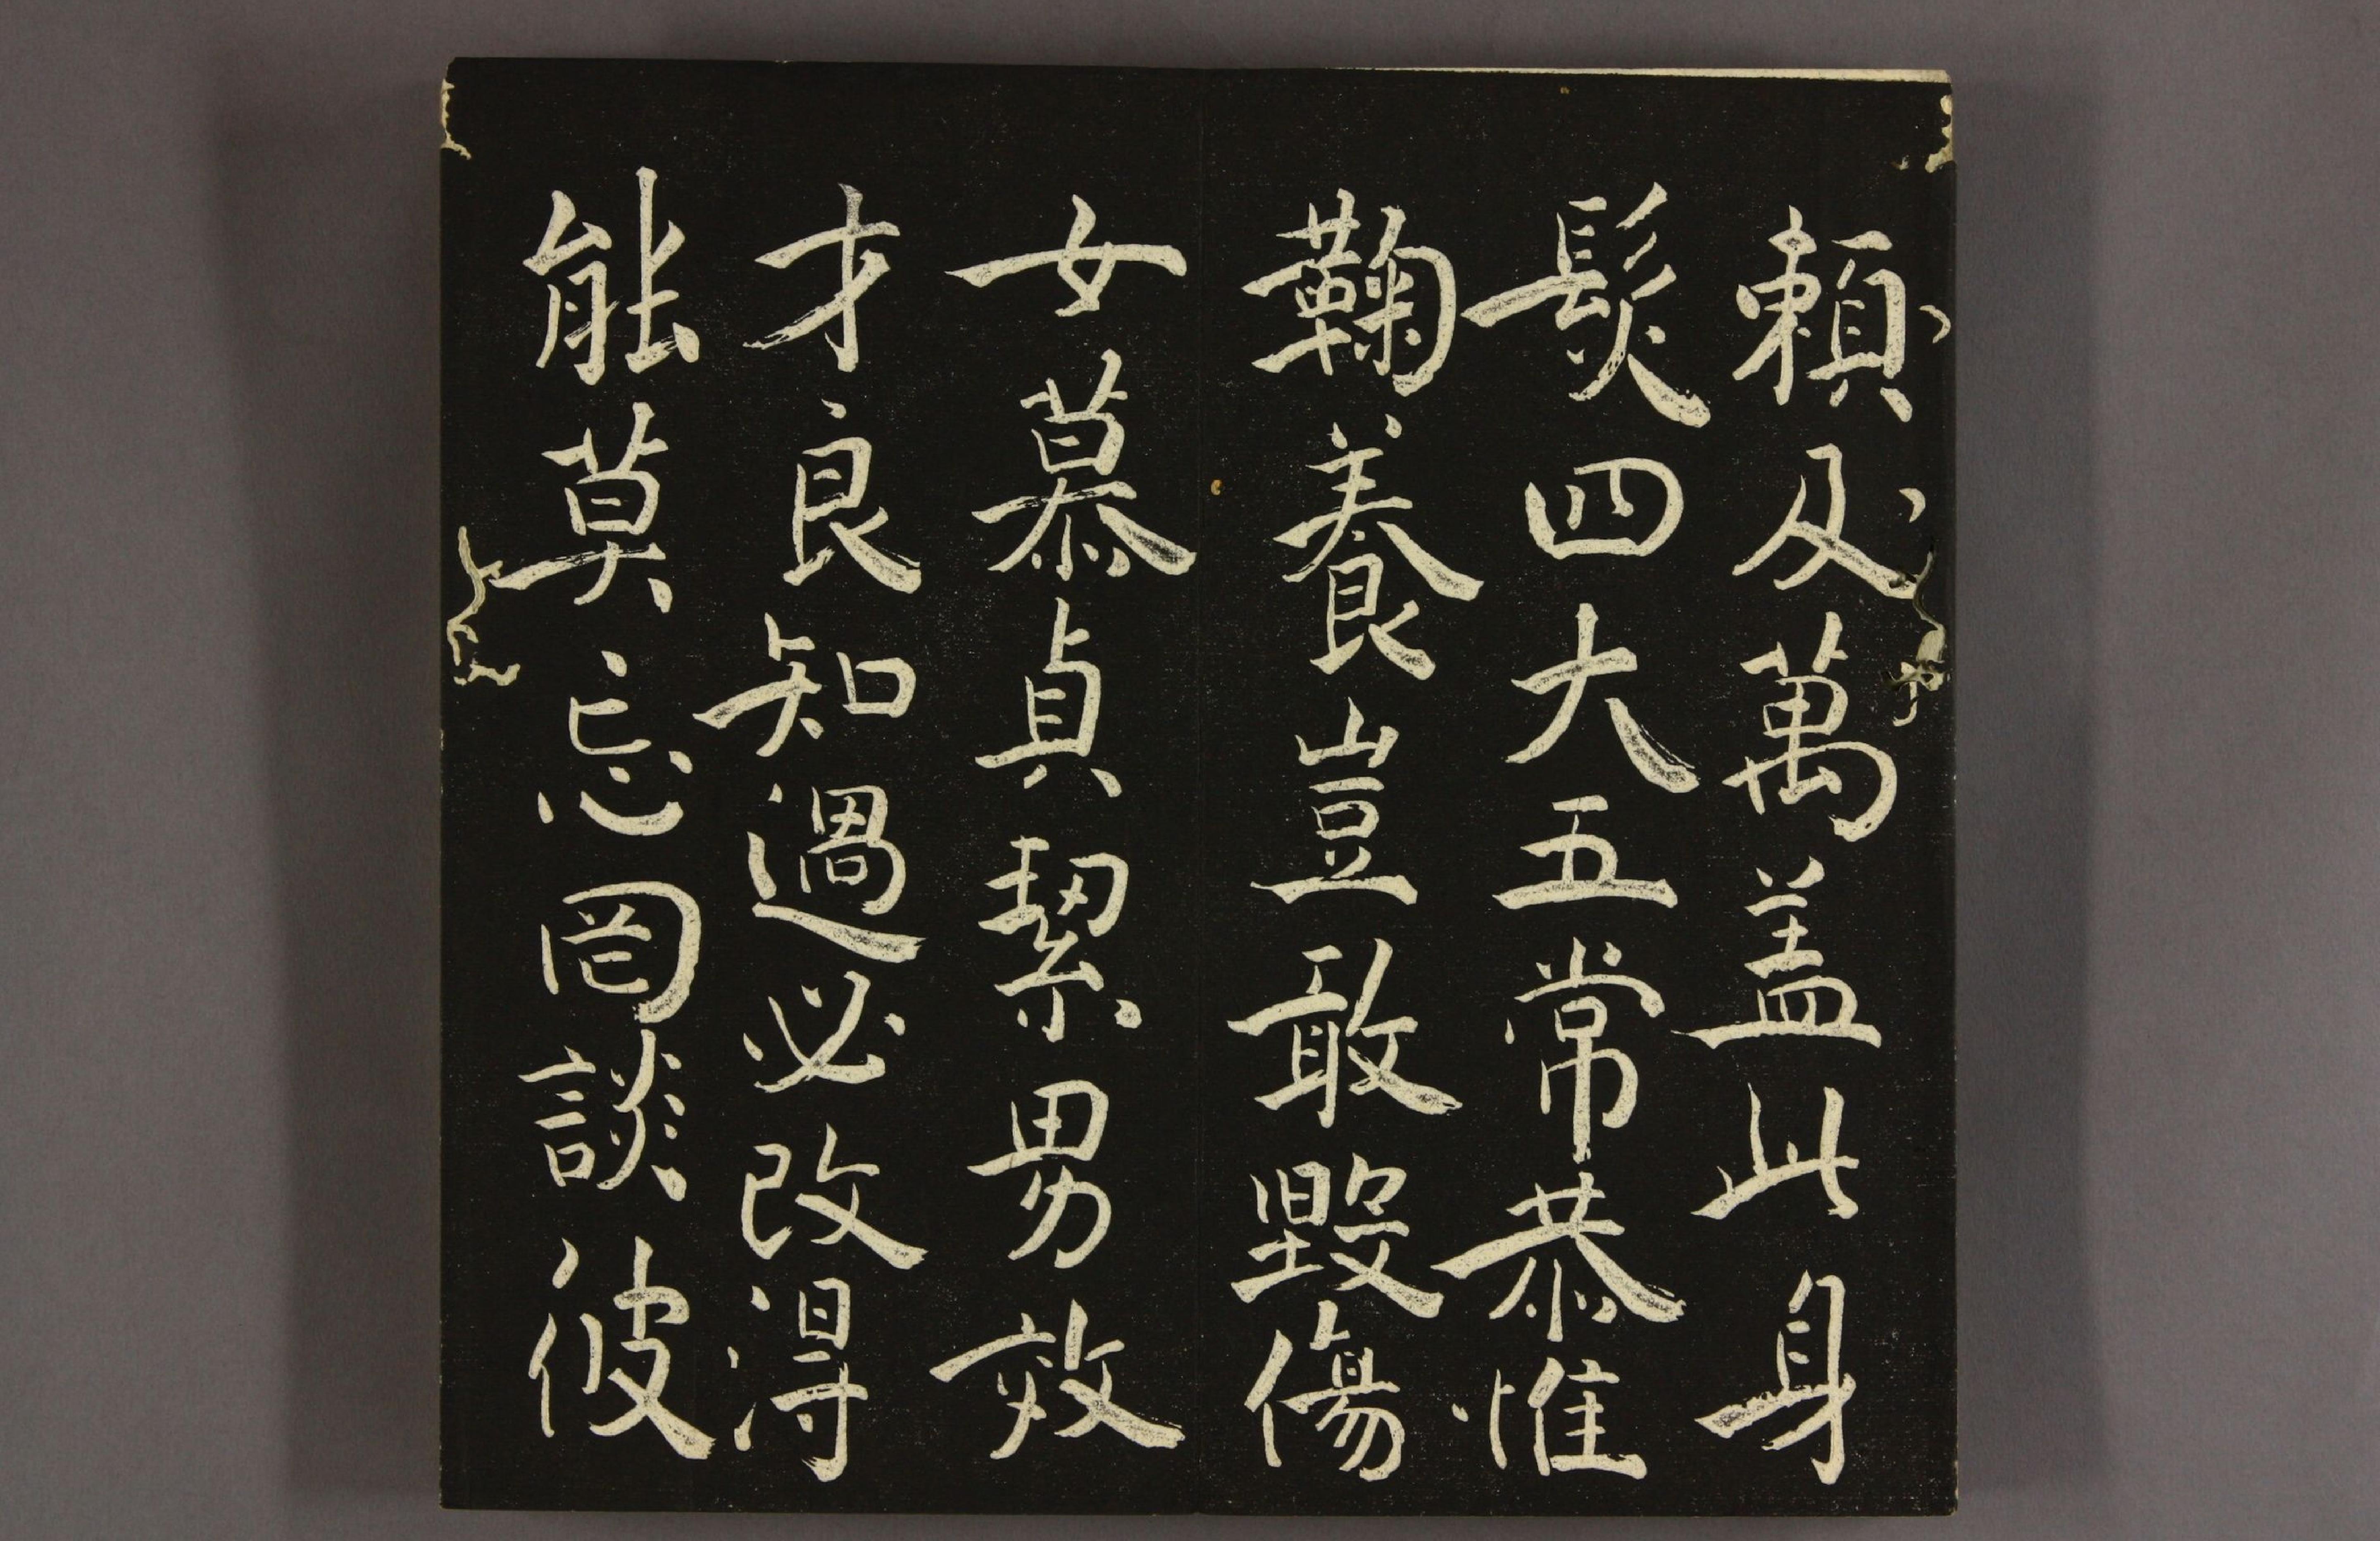 頼及萬盖此身
髮四大五常恭惟
鞠養豈敢毀傷
女慕貞絜男效
才良知過必改得
能莫忘罔談彼